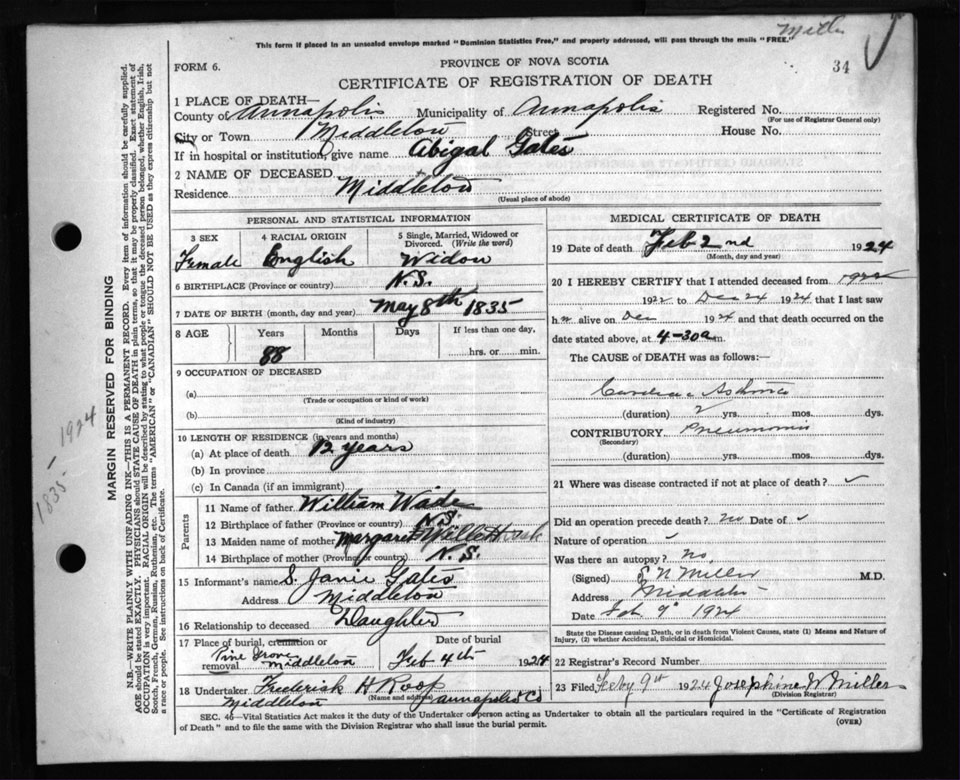 Miller
This form if placed in an unsealed envelope marked "Dominion Statistics Free," and properly addressed, will pass through the mails "FREE."
34
FORM 6.
PROVINCE OF NOVA SCOTIA
CERTIFICATE OF REGISTRATION OF DEATH
1 PLACE OF DEATH—
County of Annapolis Municipality of Annapolis Registered No.
(For use of Registrar General only)
City or Town Middleton Street House No.
If in hospital or institution, give name Abigal Gates
2 NAME OF DECEASED
Residence Middleton
(Usual place of abode)
PERSONAL AND STATISTICAL INFORMATION
3 SEX 4 RACIAL ORIGIN 5 Single, Married, Widowed or Divorced. (Write the word)
Female English Widow
6 BIRTHPLACE (Province or country) N.S.
7 DATE OF BIRTH (month, day and year) May 8th 1835
8 AGE Years Months Days If less than one day,
88 hrs. or min.
9 OCCUPATION OF DECEASED
(a)
(Trade or occupation or kind of work)
(b)
(Kind of industry)
10 LENGTH OF RESIDENCE (in years and months)
(a) At place of death 12 years
(b) In province
(c) In Canada (if an immigrant)
Parents
11 Name of father William Wade
12 Birthplace of father (Province or country) N.S.
13 Maiden name of mother Margaret
14 Birthplace of mother (Province or country) N.S.
15 Informant's name S. Janie Gates
Address Middleton
16 Relationship to deceased Daughter
17 Place of burial, cremation or removal Date of burial
Pine Grove Middleton Feb 4th 1924
18 Undertaker Frederick H Roop
(Name and address)
Middleton Annapolis Co
MEDICAL CERTIFICATE OF DEATH
19 Date of death Feb 2nd 1924
(Month, day and year)
20 I HEREBY CERTIFY that I attended deceased from 1922
1922 to Dec 24 1924 that I last saw
h alive on Dec 1924 and that death occurred on the
date stated above, at 4-30 a m.
The CAUSE of DEATH was as follows:—
Cardiac Asthma
(duration) 2 yrs. mos. dys.
CONTRIBUTORY Pneumonia
(Secondary)
(duration) yrs. mos. dys.
21 Where was disease contracted if not at place of death? ✓
Did an operation precede death? no Date of ✓
Nature of operation ✓
Was there an autopsy? No
(Signed) Miller M.D.
Address Middleton
Date Feb 9" 1924
State the Disease causing Death, or in death from Violent Causes, state (1) Means and Nature of Injury, (2) whether Accidental, Suicidal or Homicidal.
22 Registrar's Record Number
23 Filed Feby 9th 1924 Josephine W Miller
(Division Registrar)
SEC. 46—Vital Statistics Act makes it the duty of the Undertaker or person acting as Undertaker to obtain all the particulars required in the "Certificate of Registration
of Death" and to file the same with the Division Registrar who shall issue the burial permit.
(OVER)
MARGIN RESERVED FOR BINDING
N.B.—WRITE PLAINLY WITH UNFADING INK—THIS IS A PERMANENT RECORD. Every item of information should be carefully supplied.
AGE should be stated EXACTLY. PHYSICIANS should STATE CAUSE OF DEATH in plain terms, so that it may be properly classified. Exact statement of
OCCUPATION is very important. RACIAL ORIGIN will be described by stating to what people or tongue the deceased person belonged, whether English, Irish,
Scotch, French, German, Russian, Ruthenian, etc. The terms "AMERICAN" or "CANADIAN" SHOULD NOT BE USED as they express citizenship but not
a race or people. See instructions on back of Certificate.
1924
1835